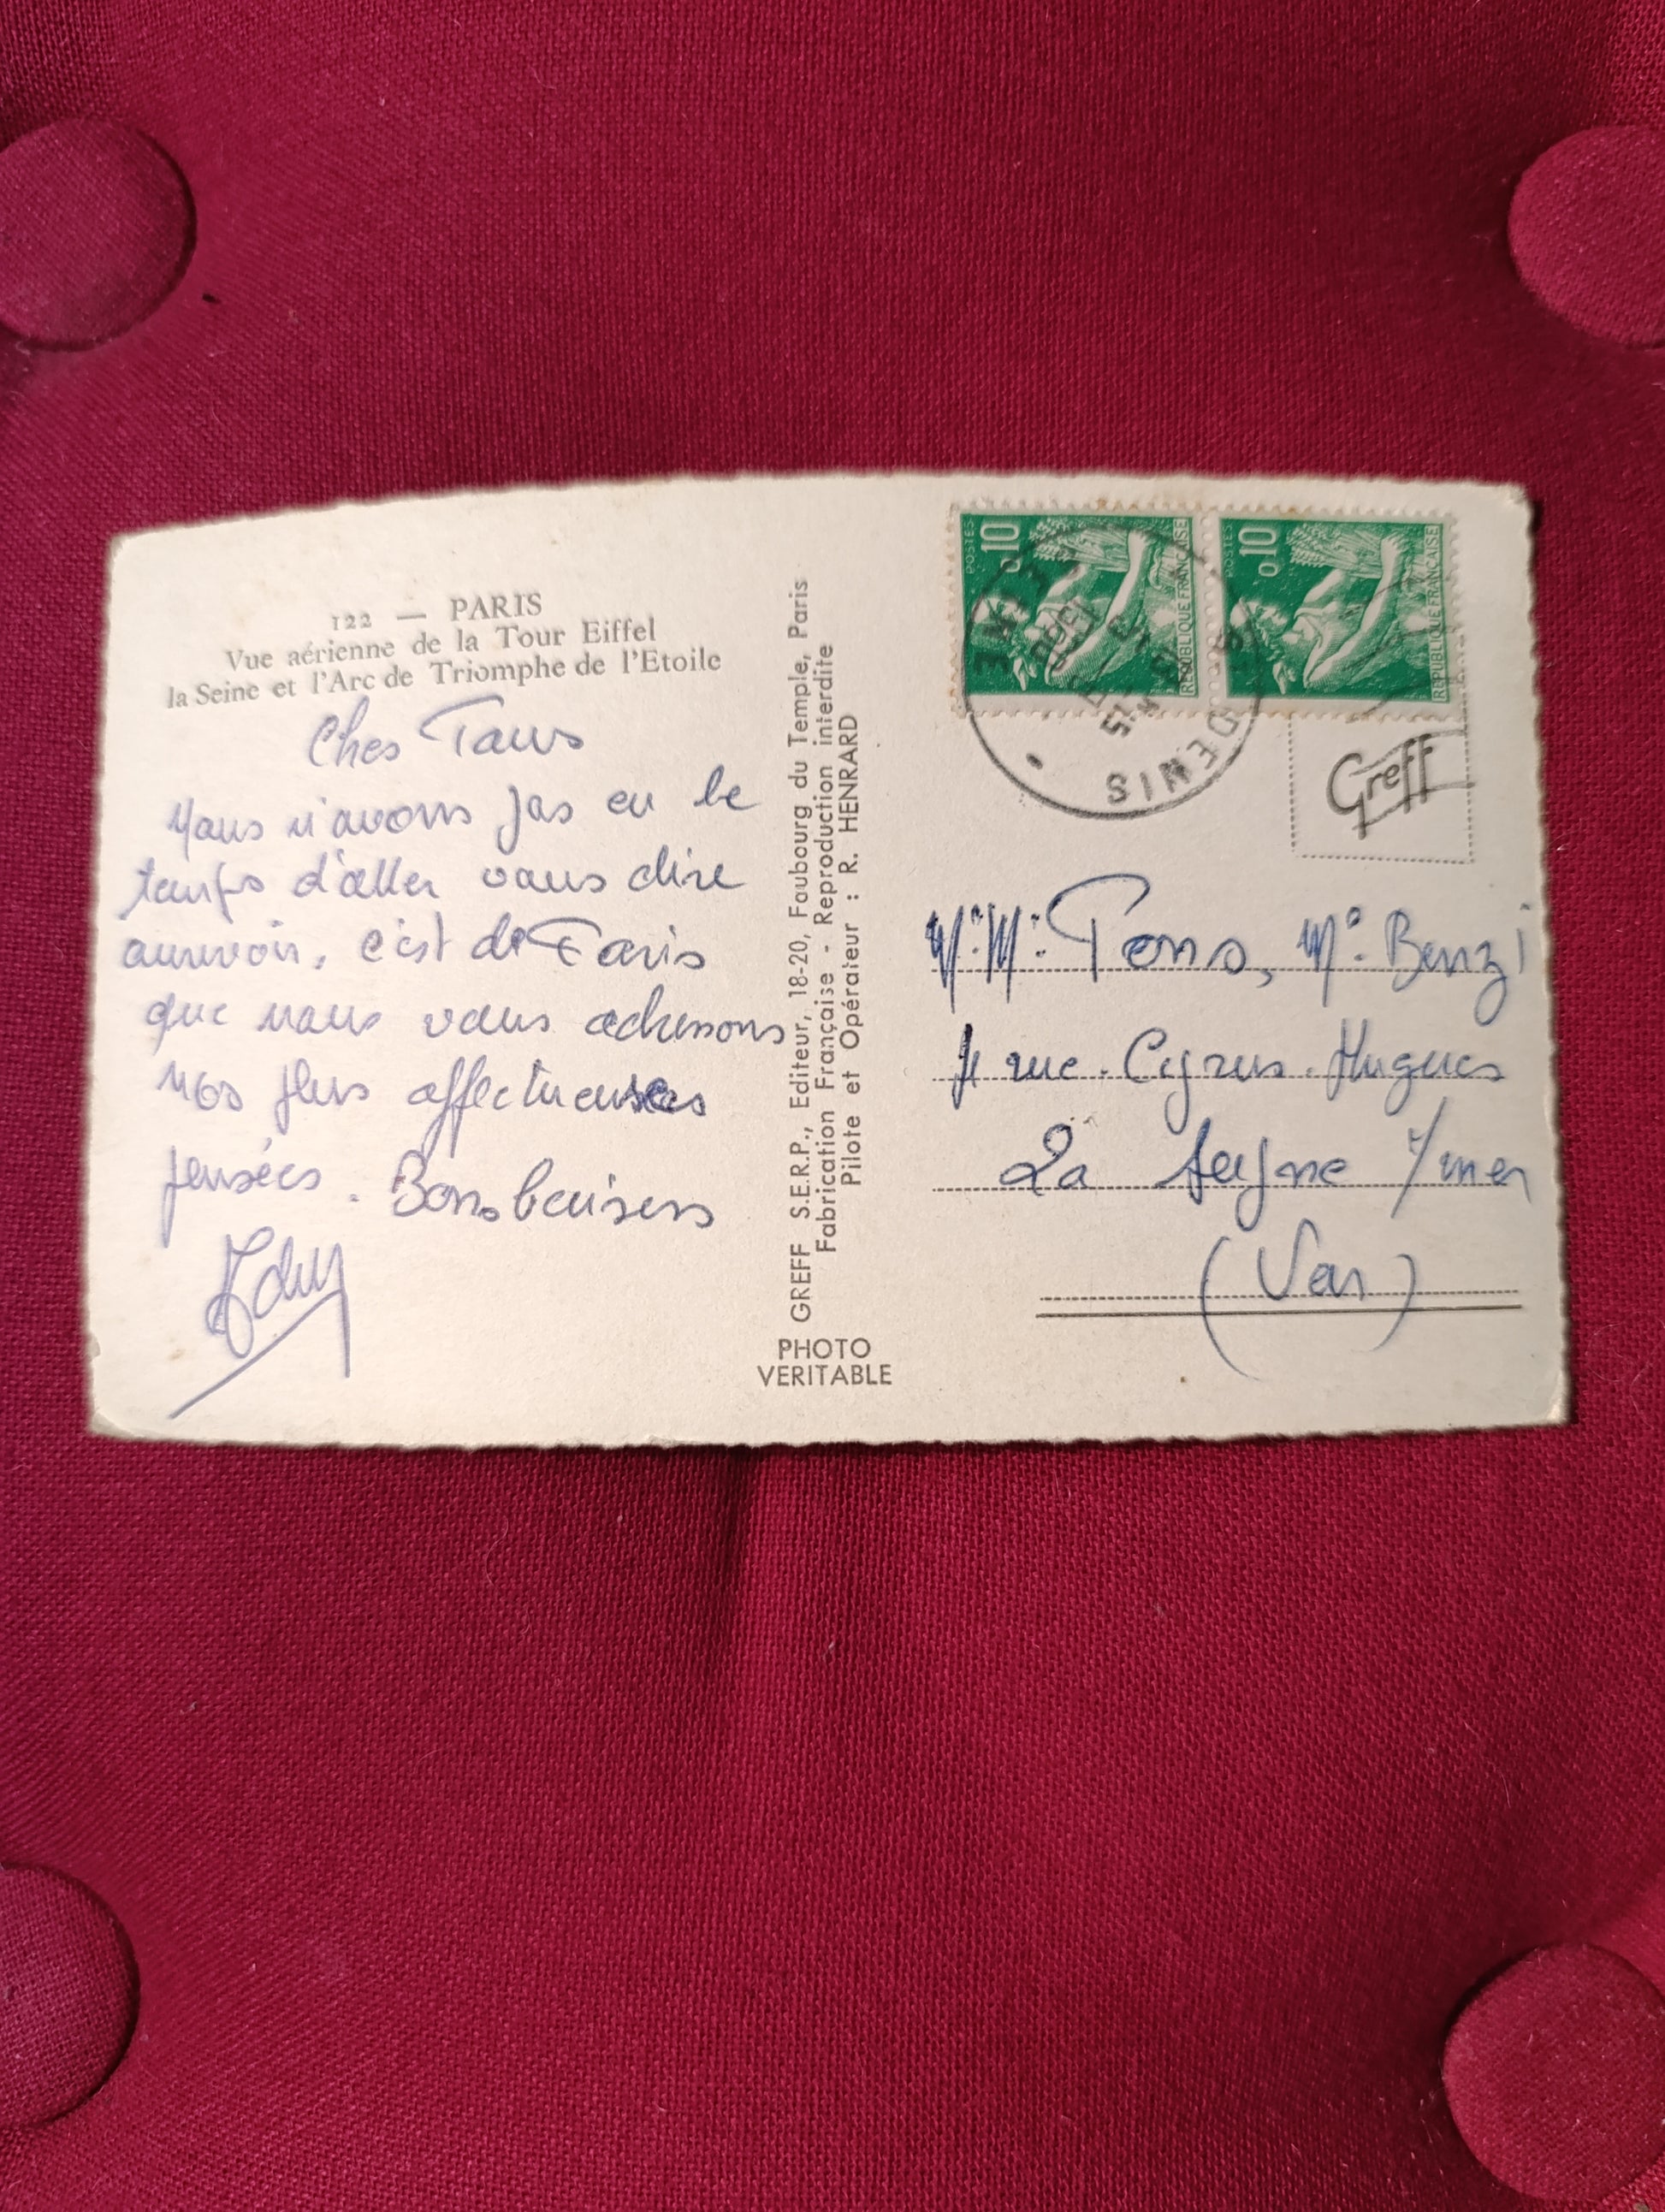 122 — PARIS
Vue aérienne de la Tour Eiffel
la Seine et l'Arc de Triomphe de l'Etoile
Chers Tous
Nous n'avons pas eu le
temps d'aller vous dire
aurevoir, c'est de Paris
que nous vous adressons
nos plus affectueuses
pensées. Bons baisers
GREFF S.E.R.P., Editeur, 18-20, Faubourg du Temple, Paris
Fabrication Française - Reproduction interdite
Pilote et Opérateur : R. HENRARD
PHOTO
VERITABLE
POSTES
0,10
REPUBLIQUE FRANÇAISE
POSTES
0,10
REPUBLIQUE FRANÇAISE
DENIS
SEINE
Greff
Mr Me Pons, Me Benzi
4 rue Cyrus Hugues
La Seyne s/mer
(Var)